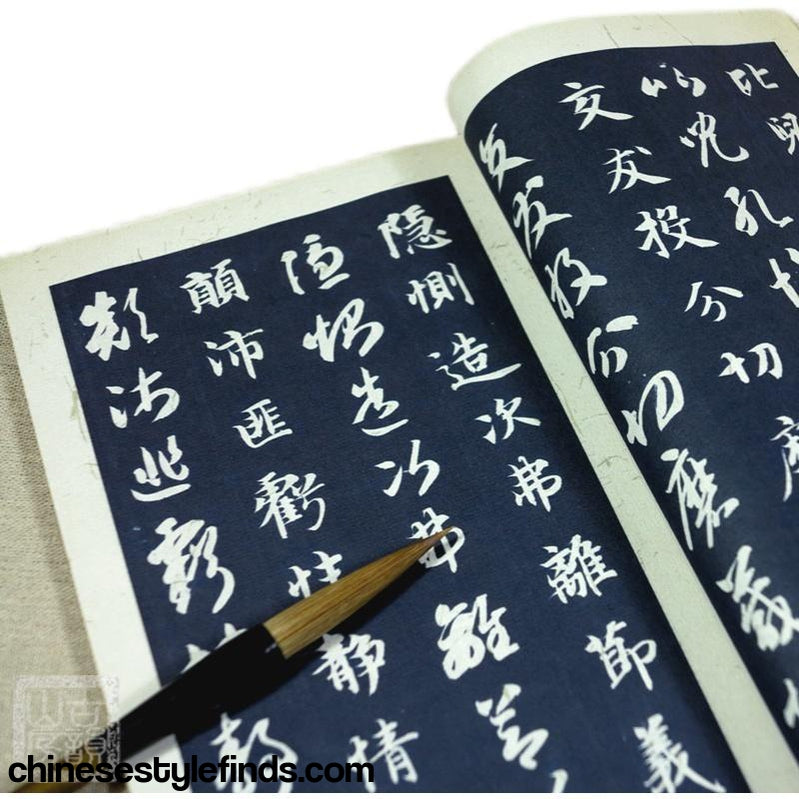 比兒
比兒孔
交友投分切磨
交友投分切磨箴
隱惻造次弗離節義
隱惻造次弗離節
顛沛匪虧性靜情
顛沛匪虧
chinesestylefinds.com